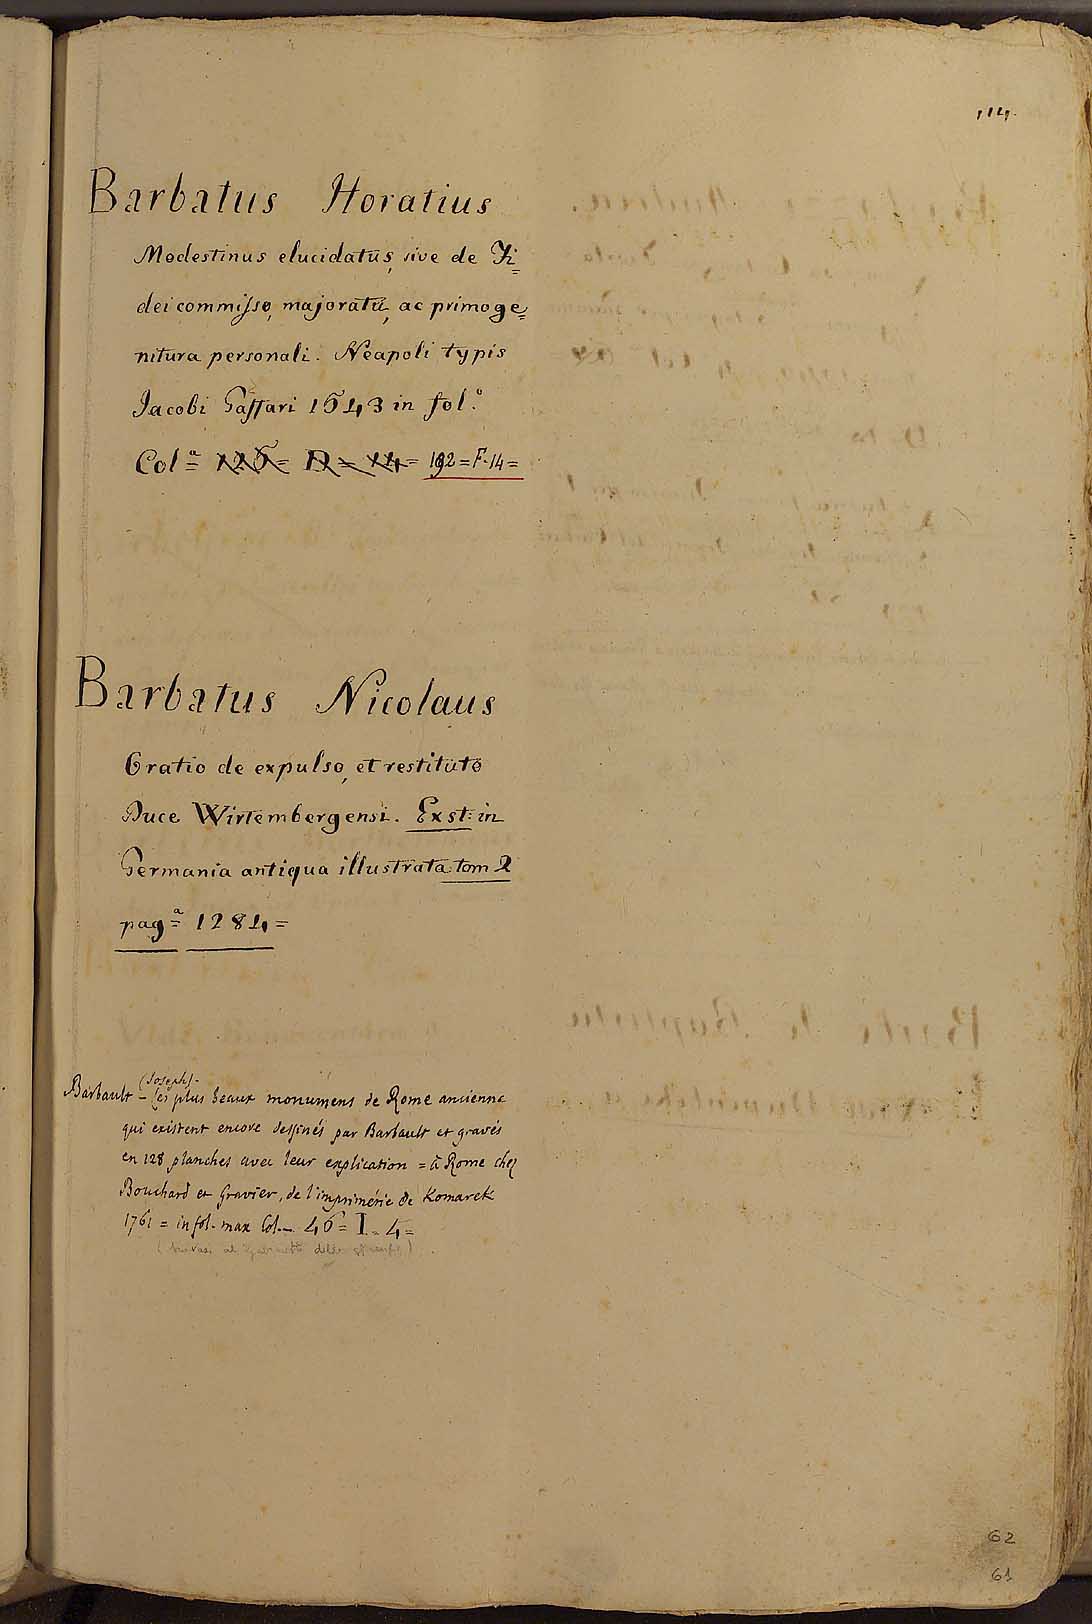 114.
Barbatus Horatius
Modestinus elucidatus, sive de Fi=
dei commisso, majoratu, ac primoge=
nitura personali. Neapoli typis
Jacobi Gaffari 1643 in fol.º
Colª= 126= D = 14= 192=F-14=
Barbatus Nicolaus
Oratio de expulso, et restituto
Duce Wirtembergensi. Exst: in
Germania antiqua illustrata tom 2
pagª= 1284=
(Joseph).
Barbault - Les plus beaux monumens de Rome ancienne
qui existent encore dessinés par Barbault et gravés
en 128 planches avec leur explication = à Rome chez
Bouchard et Gravier, de l'imprimérie de Komarek
1761 = in fol. max Col.- 46= I - 4=
al delle
62
61